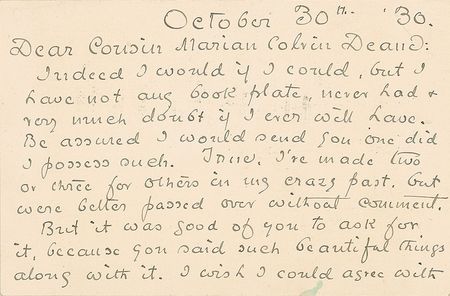 October 30th '30.
Dear Cousin Marian Colvin Deane:
Indeed I would if I could, but I
have not any book plate, never had &
very much doubt if I ever will have.
Be assured I would send you one did
I possess such. True, I've made two
or three for others in my crazy past, but
were better passed over without comment.
But it was good of you to ask for
it, because you said such beautiful things
along with it. I wish I could agree with